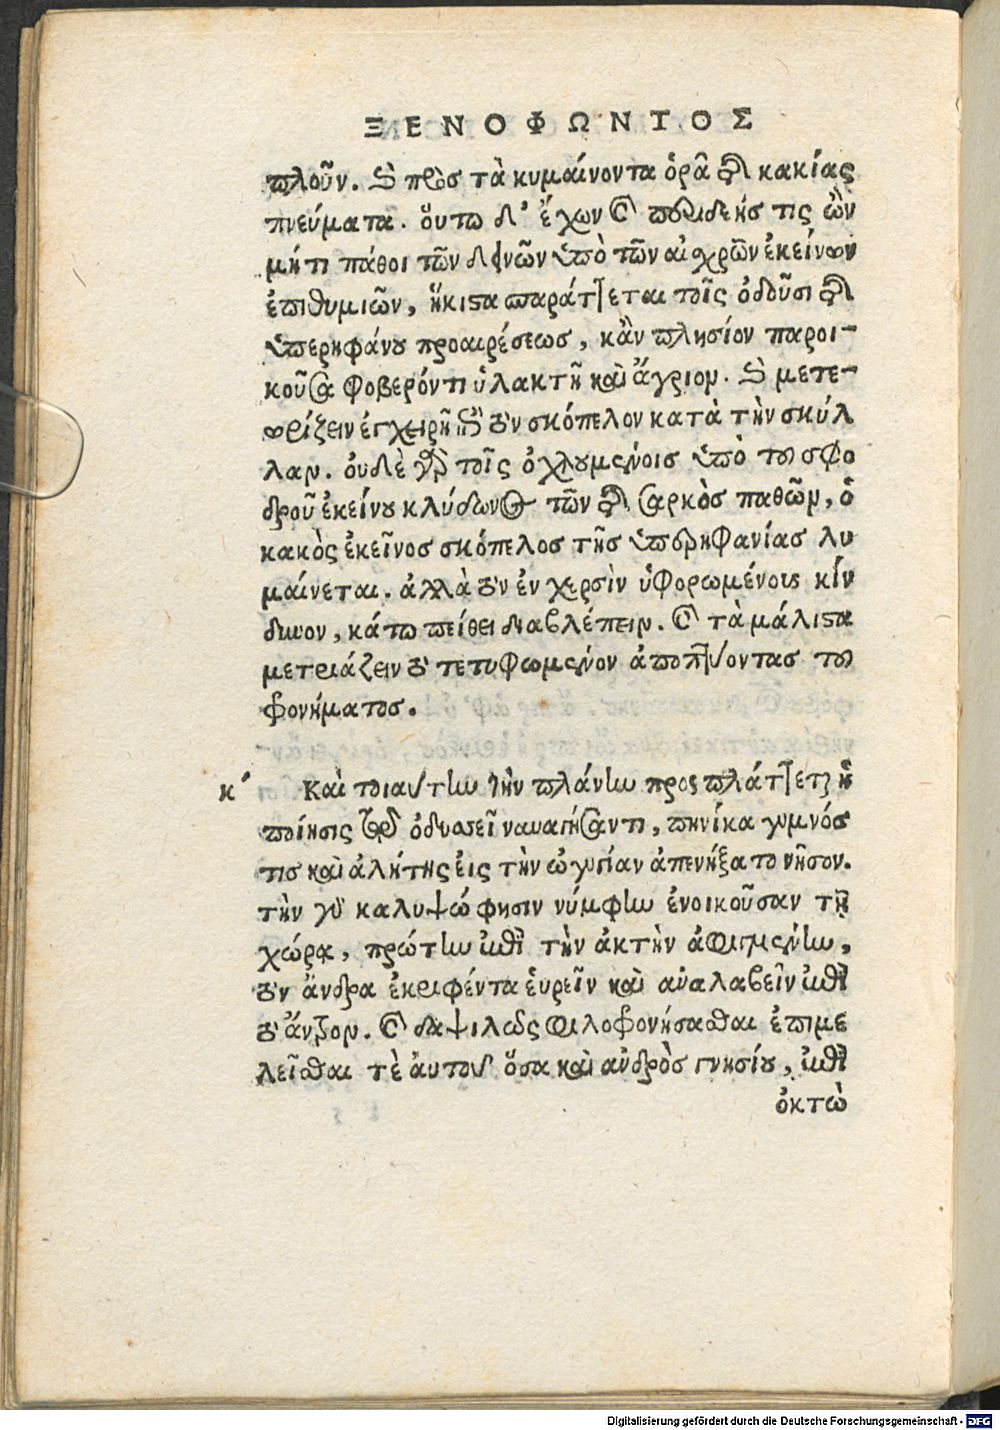 ΞΕΝΟΦΩΝΤΟΣ
πλοῦν. καὶ πρὸς τὰ κυμαίνοντα ὁρᾷ τῆς κακίας
πνεύματα. οὕτω δ' ἔχων καὶ περιδεής τις ὢν
μή τι πάθοι τῶν δεινῶν ὑπὸ τῶν αἰσχρῶν ἐκείνων
ἐπιθυμιῶν, ἥκιστα παράττεται τοῖς ὀδοῦσι τῆς
ὑπερηφάνου προαιρέσεως, κἂν πλησίον παροι-
κοῦσα φοβερόν τι ὑλακτῇ καὶ ἄγριον. καὶ μετε-
ωρίζειν ἐγχειρῇ τὸν σκόπελον κατὰ τὴν σκύλ
λαν. οὐδὲ γὰρ τοῖς ὀχλουμένοις ὑπὸ του σφο
δροῦ ἐκείνου κλύδωνος τῶν τῆς σαρκὸς παθῶν, ὁ
κακὸς ἐκεῖνος σκόπελος τῆς ὑπερηφανίας λυ
μαίνεται. ἀλλὰ τὸν ἐν χερσὶν ὑφορωμένους κίν
δυνον, κάτω πείθει διαβλέπειν. καὶ τὰ μάλιστα
μετριάζειν τὸ τετυφωμένον ἀποπτύοντας του
φρονήματος.
κ' Καὶ τοιαύτην τὴν πλάνην προσπλάττεται ἡ
ποίησις τῷ ὀδυσσεῖ ναυαγήσαντι, πηνίκα γυμνός
τις καὶ ἀλήτης εἰς τὴν ὠγυγίαν ἀπενήξατο νῆσον.
τὴν γὰρ καλυψώ φησιν νύμφην ἐνοικοῦσαν τῇ
χώρᾳ, πρώτην μετὰ τὴν ἀκτὴν ἀφιγμένην,
τὸν ἄνδρα ἐκριφέντα εὑρεῖν καὶ ἀναλαβεῖν μετὰ
τὸ ἄντρον. καὶ δαψιλῶς φιλοφρονήσασθαι ἐπιμε
λεῖσθαι τὲ αὐτοῦ ὅσα καὶ ἀνδρὸς γνησίου, μετὰ
ὀκτὼ
Digitalisierung gefördert durch die Deutsche Forschungsgemeinschaft - DFG